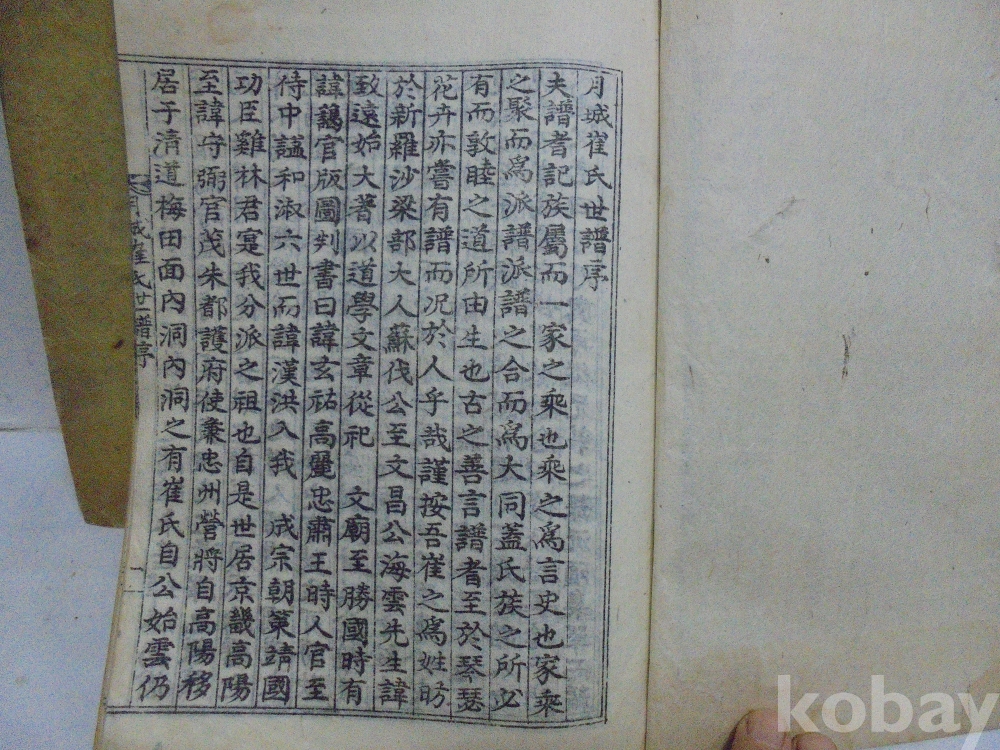 月城崔氏世譜序
夫譜者記族屬而一家之乘也乘之爲言史也家乘
之聚而爲派譜派譜之合而爲大同盖氏族之所必
有而敦睦之道所由生也古之善言譜者至於琴瑟
花卉亦嘗有譜而况於人乎哉謹按吾崔之爲姓昉
於新羅沙梁部大人蘇伐公至文昌公海雲先生諱
致遠始大著以道學文章從祀 文廟至勝國時有
諱鷊官版圖判書曰諱玄祐高麗忠肅王時人官至
侍中諡和淑六世而諱漢洪入我 成宗朝策靖國
功臣雞林君寔我分派之祖也自是世居京畿高陽
至諱守弼官茂朱都護府使兼忠州營將自高陽移
居于清道梅田面內洞內洞之有崔氏自公始雲仍
月城崔氏世譜序
一
kobay